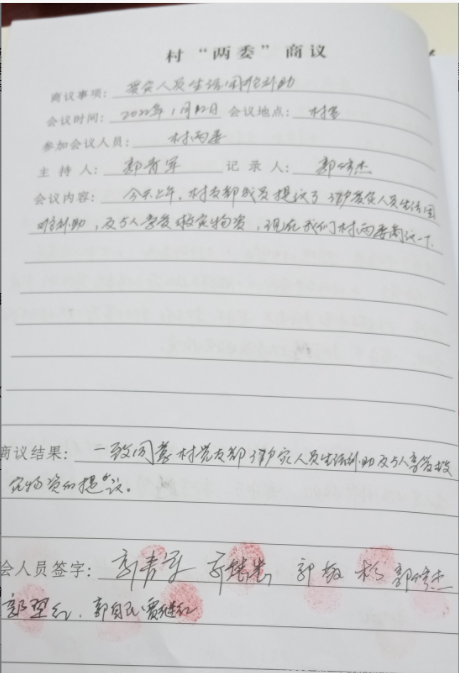 村“两委”商议
商议事项: 受灾人员生活困难补助
会议时间: 2022年1月22日 会议地点: 村室
参加会议人员: 村两委
主持人: 郭青军 记录人: 郭修杰
会议内容: 今天上午,村支部成员提议了 户受灾人员生活困
难补助,及5人享受救灾物资,现在我们村两委商议一下
商议结果: 一致同意村党支部 户灾人员生活补助及5人享受救
灾物资的提议。
会人员签字: 郭青军 郭 郭 郭修杰
郭翠红、郭自民